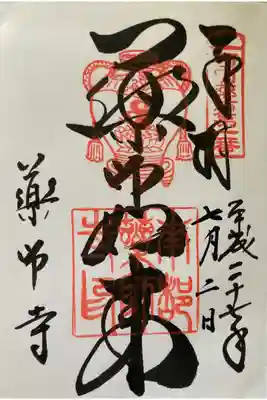 奉拝
平成二十七年
七月二日
薬師如来
薬師寺